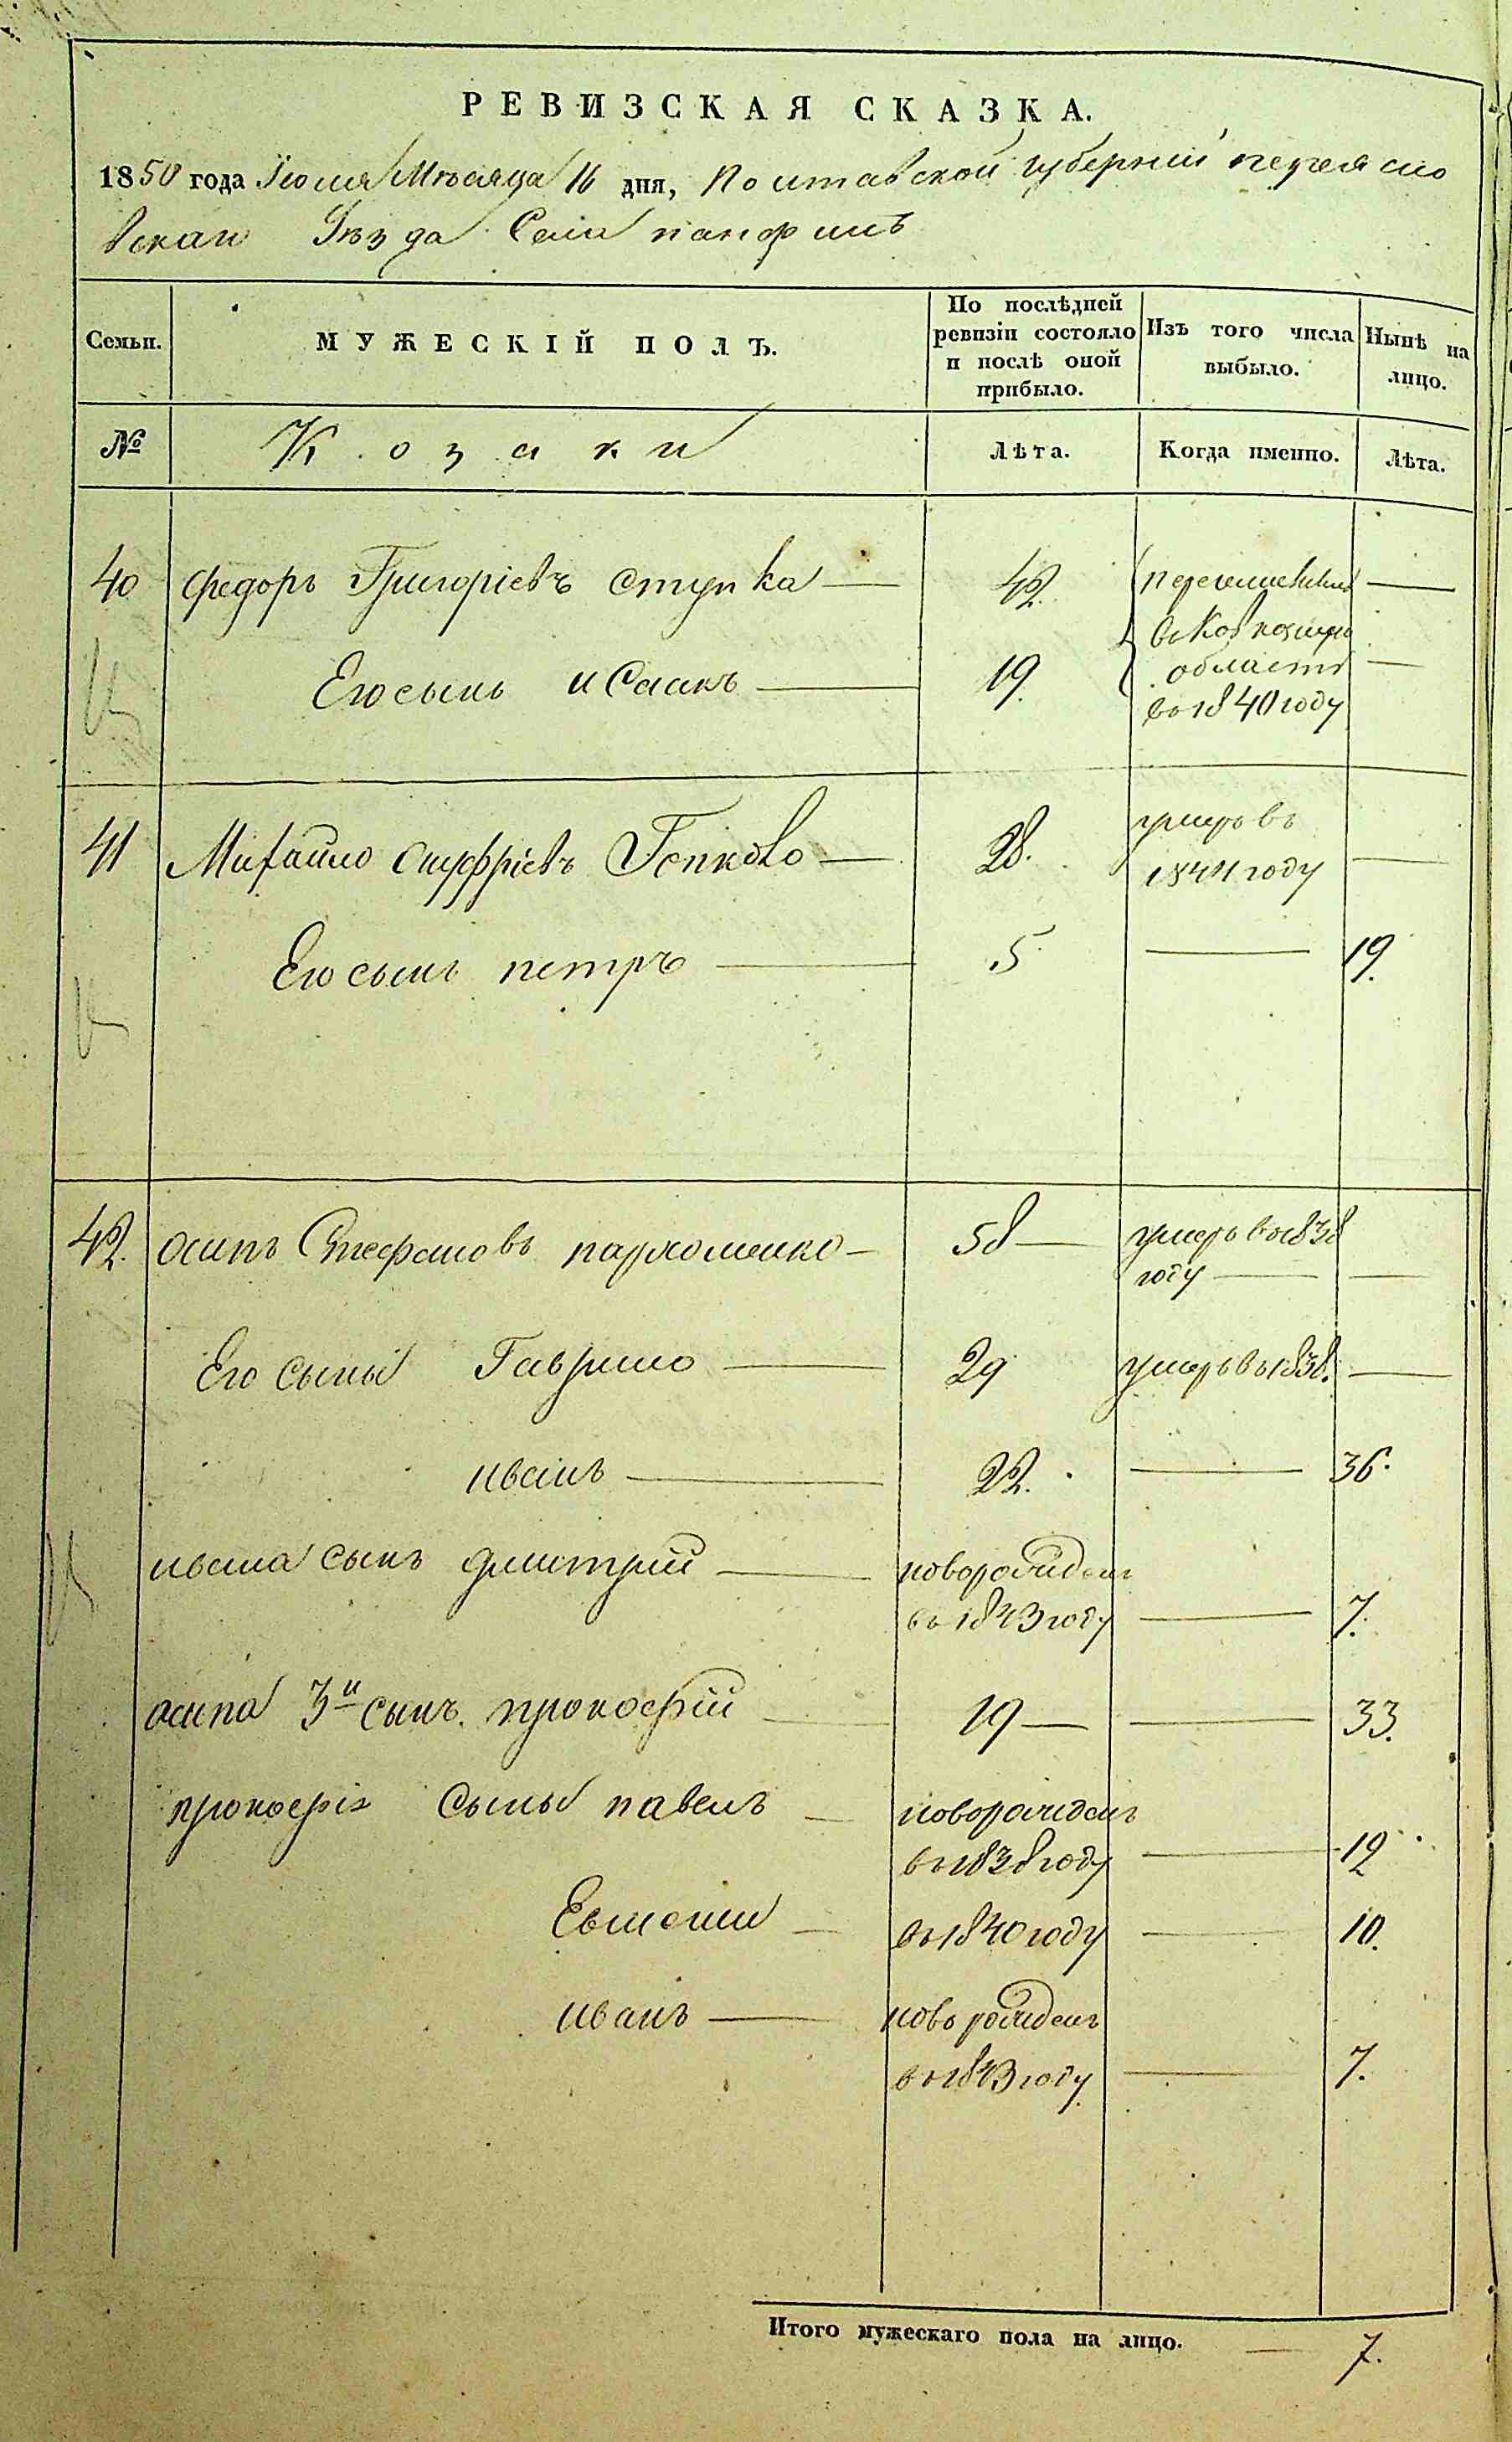 РЕВИЗСКАЯ СКАЗКА.
1850 года Іюля Мѣсяца 16 дня, Полтавской губерніи переясло
вскаго Уѣзда Села панфилъ
Семьи. МУЖЕСКІЙ ПОЛЪ. По послѣдней ревизіи состояло и послѣ оной прибыло. Изъ того числа выбыло. Нынѣ на лицо.
№ Козаки Лѣта. Когда именно. Лѣта.
40 федоръ Григоріевъ ступка — 42. переселились —
въ
область
Его сынъ исаакъ — 19. —
въ 1840 году
41 Михайло онуфріевъ — 28. умеръ въ
1844 году —
Его сынъ петръ — 5 — 19.
42. осипъ Стефановъ пархоменко — 58 — умеръ въ 1838
году — —
Его сыны Гаврило — 29 умеръ въ 1838. —
иванъ — 22. — 36.
ивана сынъ дмитрій — новорожденъ
въ 1843 году — 7.
осипа 3й сынъ прокофій — 19 — — 33.
прокофія сыны павелъ — новорожденъ
въ 1838 году — 12
— въ 1840 году — 10.
иванъ — новорожденъ
въ 1843 году — 7.
Итого мужескаго пола на лицо. — 7.